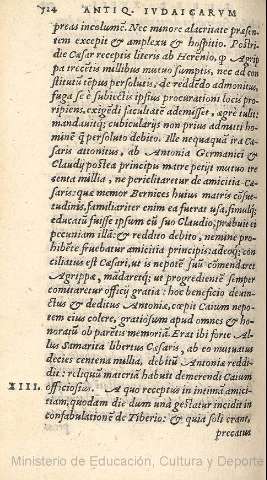 724 ANTIQ. IVDAICARVM
preas incolumē. Nec minore alacritate præsen-
tem excepit & amplexu & hospitio. Postri-
die Cæsar receptis literis ab Herēnio, ꝙ Agrip
pa trecētis millibus mutuo sumptis, nec ad con
stitutū tēpus persolutis, de reddēdo admonitus,
fuga se è subiectis ipsius procurationi locis pro
ripiens, exigēdi facultatē ademisset, ægrè tulit:
mandauitq; cubicularijs non prius admitti ho-
minē ꝗ̃ persoluto debito. Ille nequaquā ira Cæ-
saris attonitus, ab Antonia Germanici &
Claudij postea principis matre petijt mutuo tre
centa millia, ne periclitaretur de amicitia Cæ-
saris: quæ memor Bernices huius matris cōsue-
tudinis, familiariter enim ea fuerat vsa, simulq;
educatū fuisse ipsum cū suo Claudio, præbuit ei
pecuniam illā: & reddito debito, nemine pro-
hibēte fruebatur amicitia principis: adeoq; con
ciliatus est Cæsari, ut is nepotē suū cōmendaret
Agrippæ, mādaretq; ut progredientē semper
comitaretur officij gratia: hoc beneficio deuin-
ctus & deditus Antoniæ, cœpit Caium nepo-
tem eius colere, gratiosum apud omnes & ho-
noratū ob parētis memoriā. Erat ibi forte Al-
lus Samarita libertus Cæsaris, ab eo mutuatus
decies centena millia, debitū Antoniæ reddi-
dit: reliquū materiā habuit demerendi Caium
XIII. officiosius. A quo receptus in intimā amici-
tiam, quodam die dum unà gestatur incidit in
confabulationē de Tiberio: & quia soli erant,
precatus
Ministerio de Educación, Cultura y Deporte